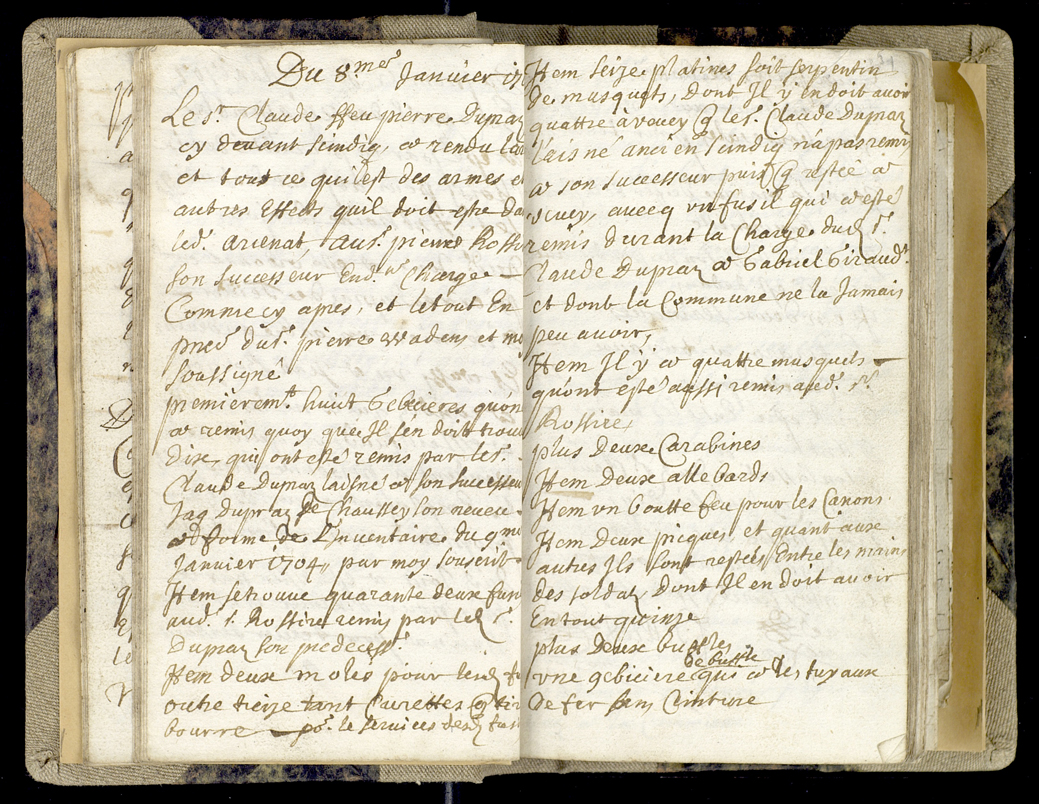 Du 8.me Janvier 17
Le s.r Claude ffeu pierre Dupraz
cy devant scindiq, a rendu
et tout ce qui est des armes et
autres Effects quil doit estre da
led. arcenat au s. pierre Rossire
son successeur End. Charge
Comme cy apres, et le tout En
pnce du s. pierre Wadens et moy
soussigné
premierem.t huict Gebecieres quon
a remis quoy que Il s'en doitt trou
dix, qui ont esté remis par le s.
Claude Dupraz laisné a son successeur
Jaq dupraz de Chaussy son neveu
de L'Inventaire du 9.me
Janvier 1704, par moy souscrit
Item se trouve quarante deux fus
aud. s. Rossire remis par led s.
Dupraz son predecess.r
Item deux moles pour lesd
outre treize tant Curettes q tir
bourre po.r le services desd fus
Item seize platines soit serpentin
de musquets, dont Il y en doit avoir
quattre à vevey q le s. Claude Dupraz
laisné ancien scindiq n'a pas remis
a son successeur puis q resté a
vevey, avecq un fusil qui a esté
remis durant la Charge dud s.r
Claude Dupraz a Gabriel Giraud
et dont la Commune ne la Jamais
peu avoir,
Item Il y a quattre musquets
qu'ont esté aussi remis aud. s.r
Rossire,
plus Deux Carabines
Item Deux allebards
Item un boutte feu pour les Canons
Item Deux picques, et quant aux
autres Ils sont restées Entre les mains
des soldaz, dont Il en doit avoir
En tout quinze
plus Deux buffles
de buffle
une gebiciere qui a les tuyaux
De fer sans Ceinture